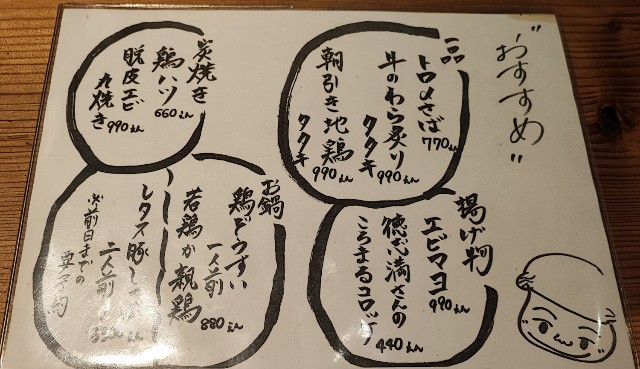 “おすすめ”
一品
トロ〆さば
770えん
牛のわら炙り
タタキ
990えん
朝引き地鶏
タタキ
990えん
炭焼き
鶏ハツ
660えん
脱皮エビ
丸焼き
990えん
揚げ物
エビマヨ
990えん
徳心満さんの
ころまるコロッケ
440えん
お鍋
鶏どうすい
一人前
若鶏か親鶏
880えん
レタス豚し
二人前
※前日までの
要予約